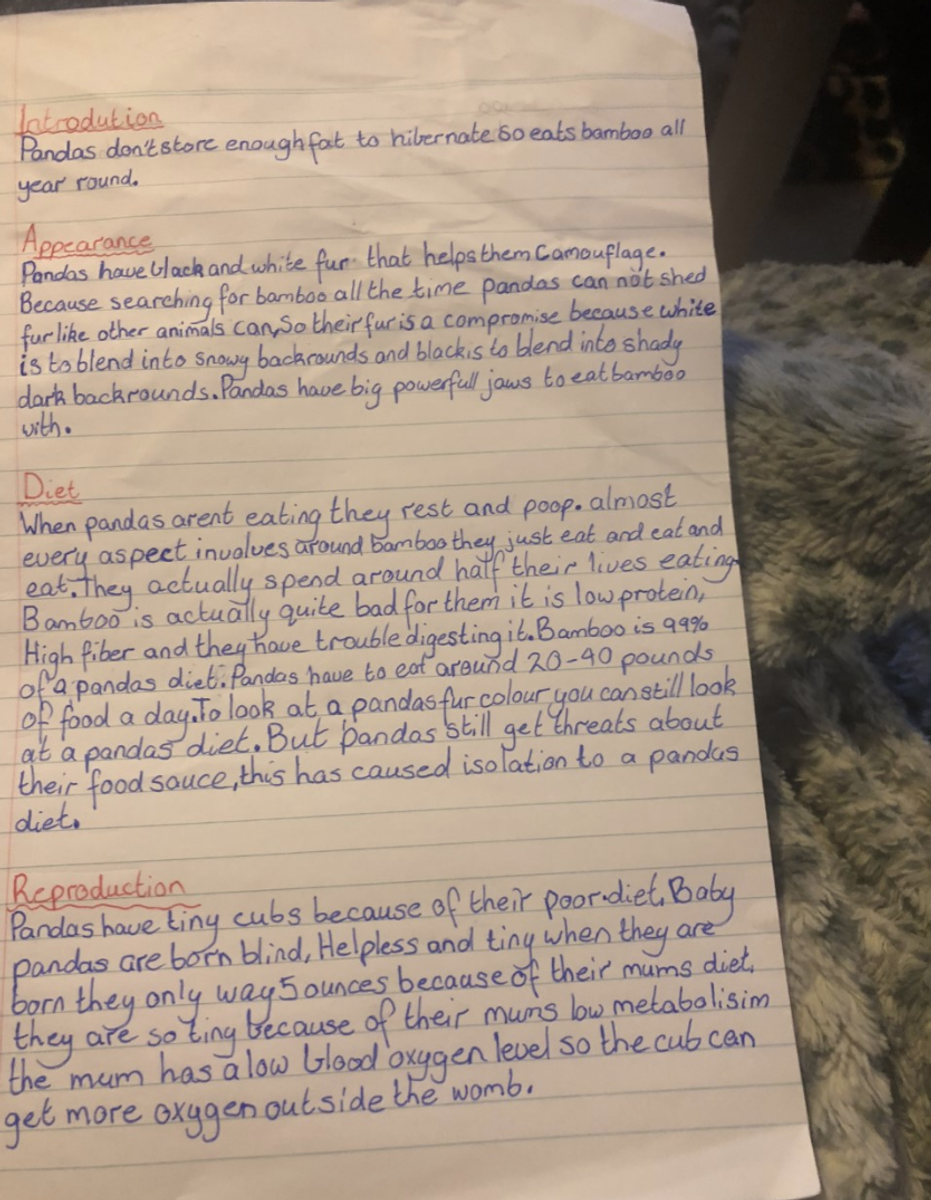 Introdution
Pandas don't store enough fat to hibernate so eats bamboo all
year round.
Appearance
Pandas have black and white fur that helps them Camouflage.
Because searching for bamboo all the time pandas can not shed
fur like other animals can, So their fur is a compromise because white
is to blend into snowy backrounds and black is to blend into shady
dark backrounds. Pandas have big powerfull jaws to eat bamboo
with.
Diet
When pandas arent eating they rest and poop. almost
every aspect involves around bamboo they just eat and eat and
eat. They actually spend around half their lives eating
Bamboo is actually quite bad for them it is low protein,
High fiber and they have trouble digesting it. Bamboo is 99%
of a pandas diet. Pandas have to eat around 20-40 pounds
of food a day. To look at a pandas fur colour you can still look
at a pandas diet. But pandas still get threats about
their food sauce, this has caused isolation to a pandas
diet.
Reproduction
Pandas have tiny cubs because of their poor diet. Baby
pandas are born blind, Helpless and tiny when they are
born they only way 5 ounces because of their mums diet.
they are so ting because of their mums low metabolisim
the mum has a low blood oxygen level so the cub can
get more oxygen outside the womb.